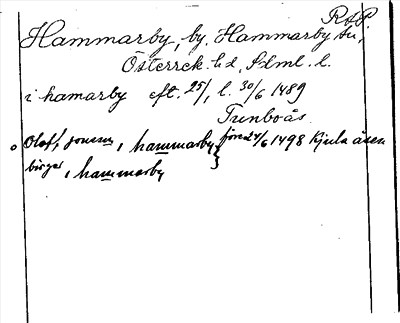 RAP
Hammarby, by, Hammarby sn,
Österrek. hd, Sdml. l.
i hamarby eft. 25/1, l. 30/6 1489
Tunboås
Olaff jonsson, hammarby } före 24/6 1498 Kjula åsen
birger, hammarby